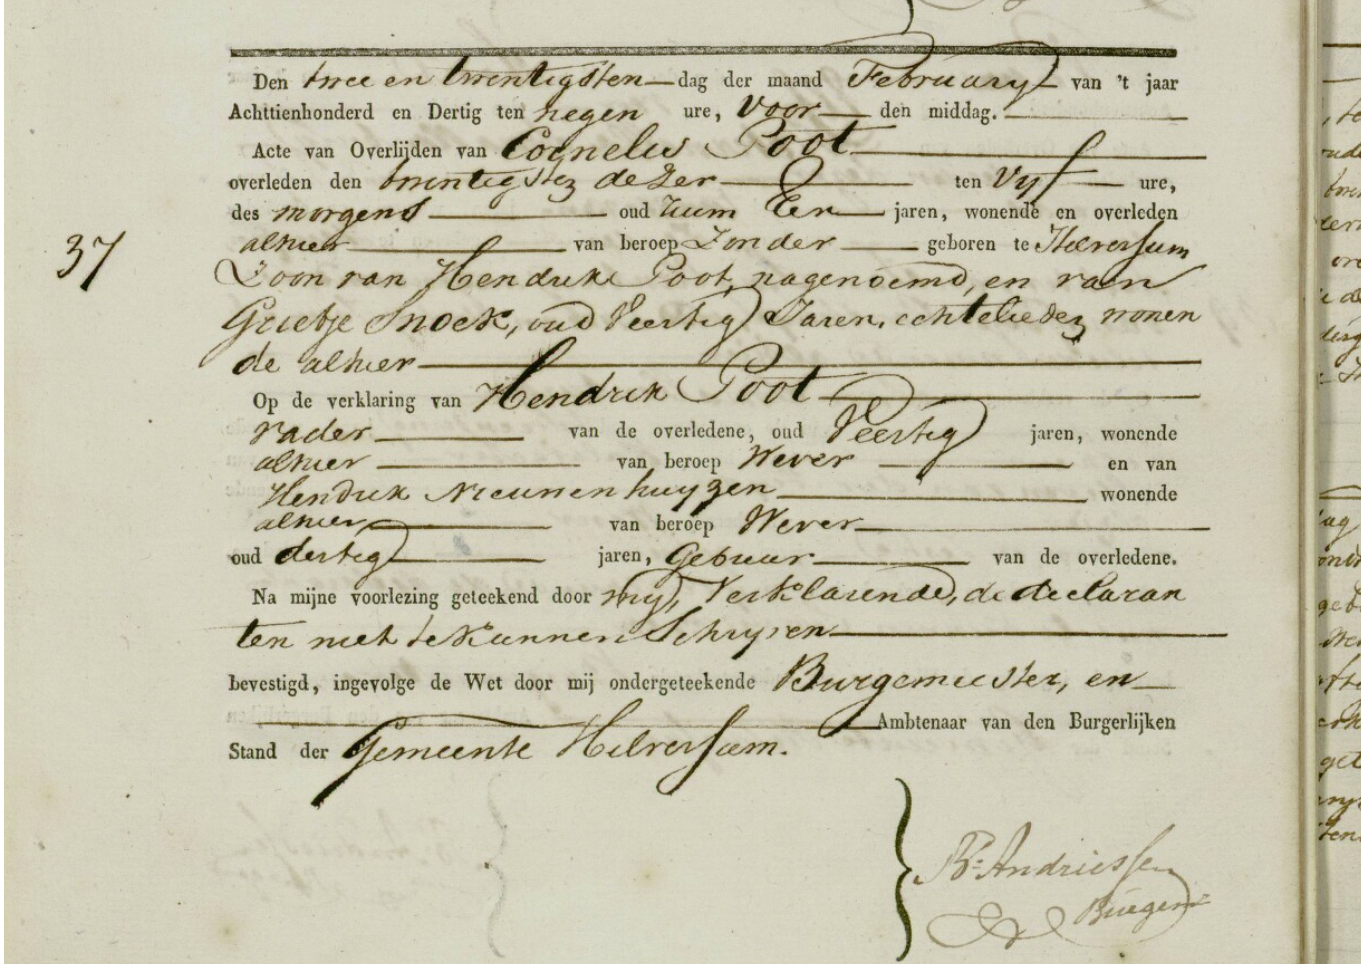 Den twee en twentigsten dag der maand February van 't jaar
Achttienhonderd en Dertig ten negen ure, voor den middag.
Acte van Overlijden van Cornelis Poot
overleden den twentigsten dezer ten vyf ure,
des morgens oud ruim Een jaren, wonende en overleden
37
alhier van beroep Zonder geboren te Hilversum
Zoon van Hendrik Poot, nagenoemd, en van
Grietje Snoek, oud Veertig Jaren, echtelieden wonen
de alhier
Op de verklaring van Hendrik Poot
vader van de overledene, oud Veertig jaren, wonende
alhier van beroep Wever en van
Hendrik Nieuwenhuyzen wonende
alhier van beroep Wever
oud dertig jaren, Gebuur van de overledene.
Na mijne voorlezing geteekend door my, Verklarende, de declaran
ten niet te kunnen Schryven
bevestigd, ingevolge de Wet door mij ondergeteekende Burgemeester, en
Ambtenaar van den Burgerlijken
Stand der Gemeente Hilversum.
Andriessen